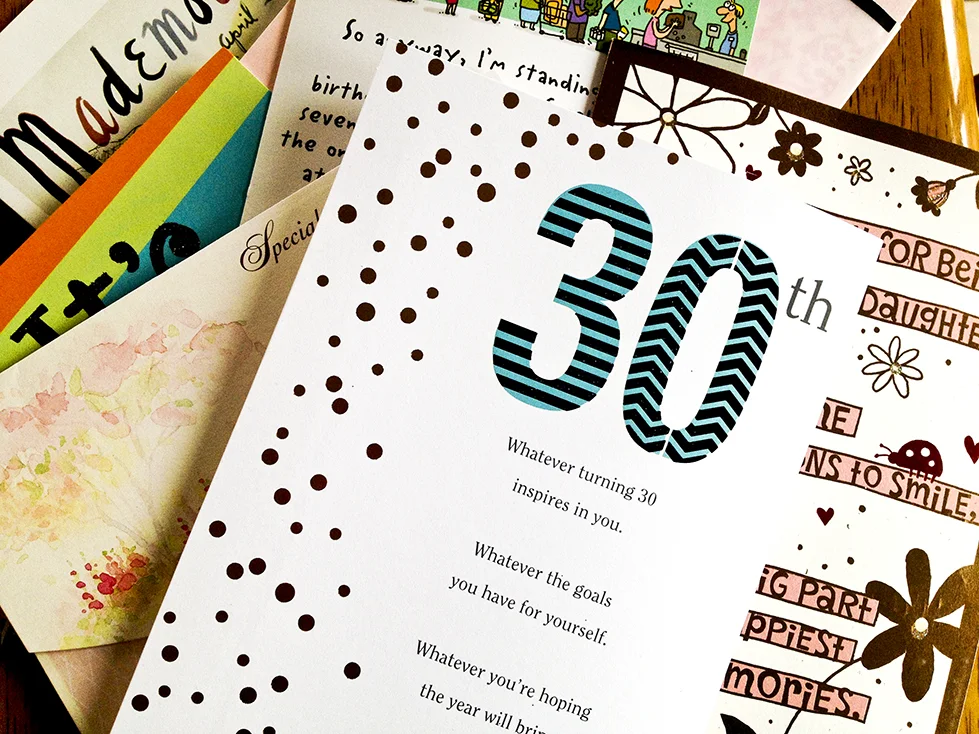 Mademo
april
So anyway, I'm standing
birth
seven
the or
at
It's
Special
30th
Whatever turning 30
inspires in you.
Whatever the goals
you have for yourself.
Whatever you're hoping
the year will brin
FOR Bei
DAUGHTE
NS to SMiLE,
iG PART
PPiEST
MORiES.